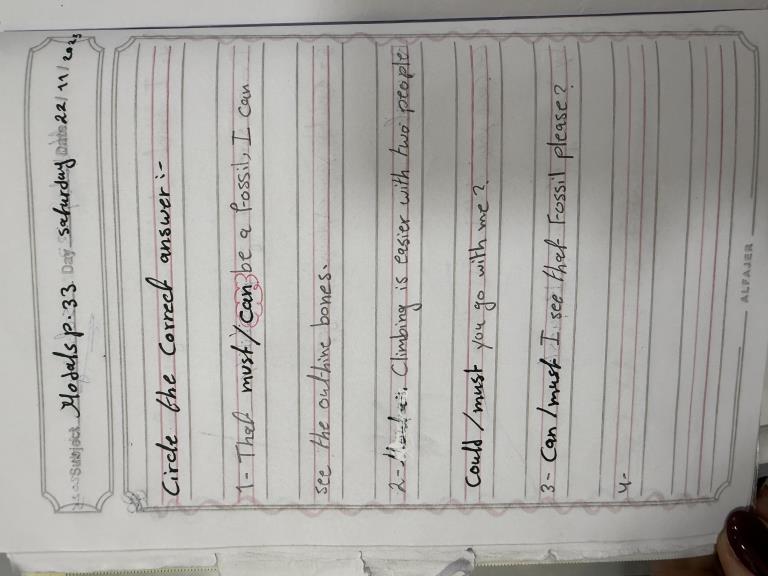 Subject Modals p.33 Day saturday Date 22/11/2025
Circle the Correct answer:-
1- That must/can be a Fossil, I can
see the outhine bones.
2- Climbing is easier with two people
Could/must you go with me?
3- Can/must I see that Fossil please?
4-
ALFAJER